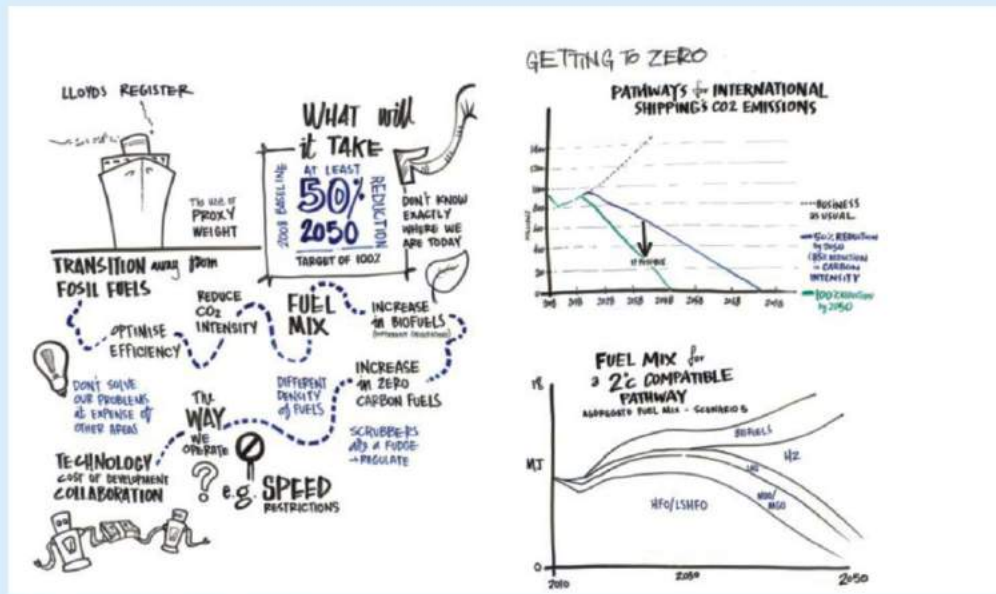 LLOYDS REGISTER
The use of
PROXY
WEIGHT
WHAT will
it TAKE
2008 BASELINE
AT LEAST
50%
2050
REDUCTION
TARGET OF 100%
DON'T KNOW
EXACTLY
WHERE WE
ARE TODAY
TRANSITION away from
FOSIL FUELS
OPTIMISE
EFFICIENCY
REDUCE
CO2
INTENSITY
FUEL
MIX
INCREASE
in BIOFUELS
INCREASE
in ZERO
CARBON FUELS
DIFFERENT
DENSITY
of FUELS
DON'T SOLVE
OUR PROBLEMS
at EXPENSE of
OTHER AREAS
The
WAY
WE
OPERATE
?
SCRUBBERS
are a FUDGE
→ REGULATE
TECHNOLOGY
COST OF DEVELOPMENT
COLLABORATION
e.g. SPEED
RESTRICTIONS
GETTING TO ZERO
PATHWAYS for INTERNATIONAL
SHIPPING'S CO2 EMISSIONS
BUSINESS
as USUAL
50% REDUCTION
by 2050
(85% REDUCTION
in CARBON
INTENSITY
100% REDUCTION
by 2050
IF POSSIBLE
FUEL MIX for
a 2°C COMPATIBLE
PATHWAY
AGGREGATE FUEL MIX - SCENARIO 5
BIOFUELS
H2
LNG
MDO/
MGO
HFO/LSHFO
0
2010
2030
2050